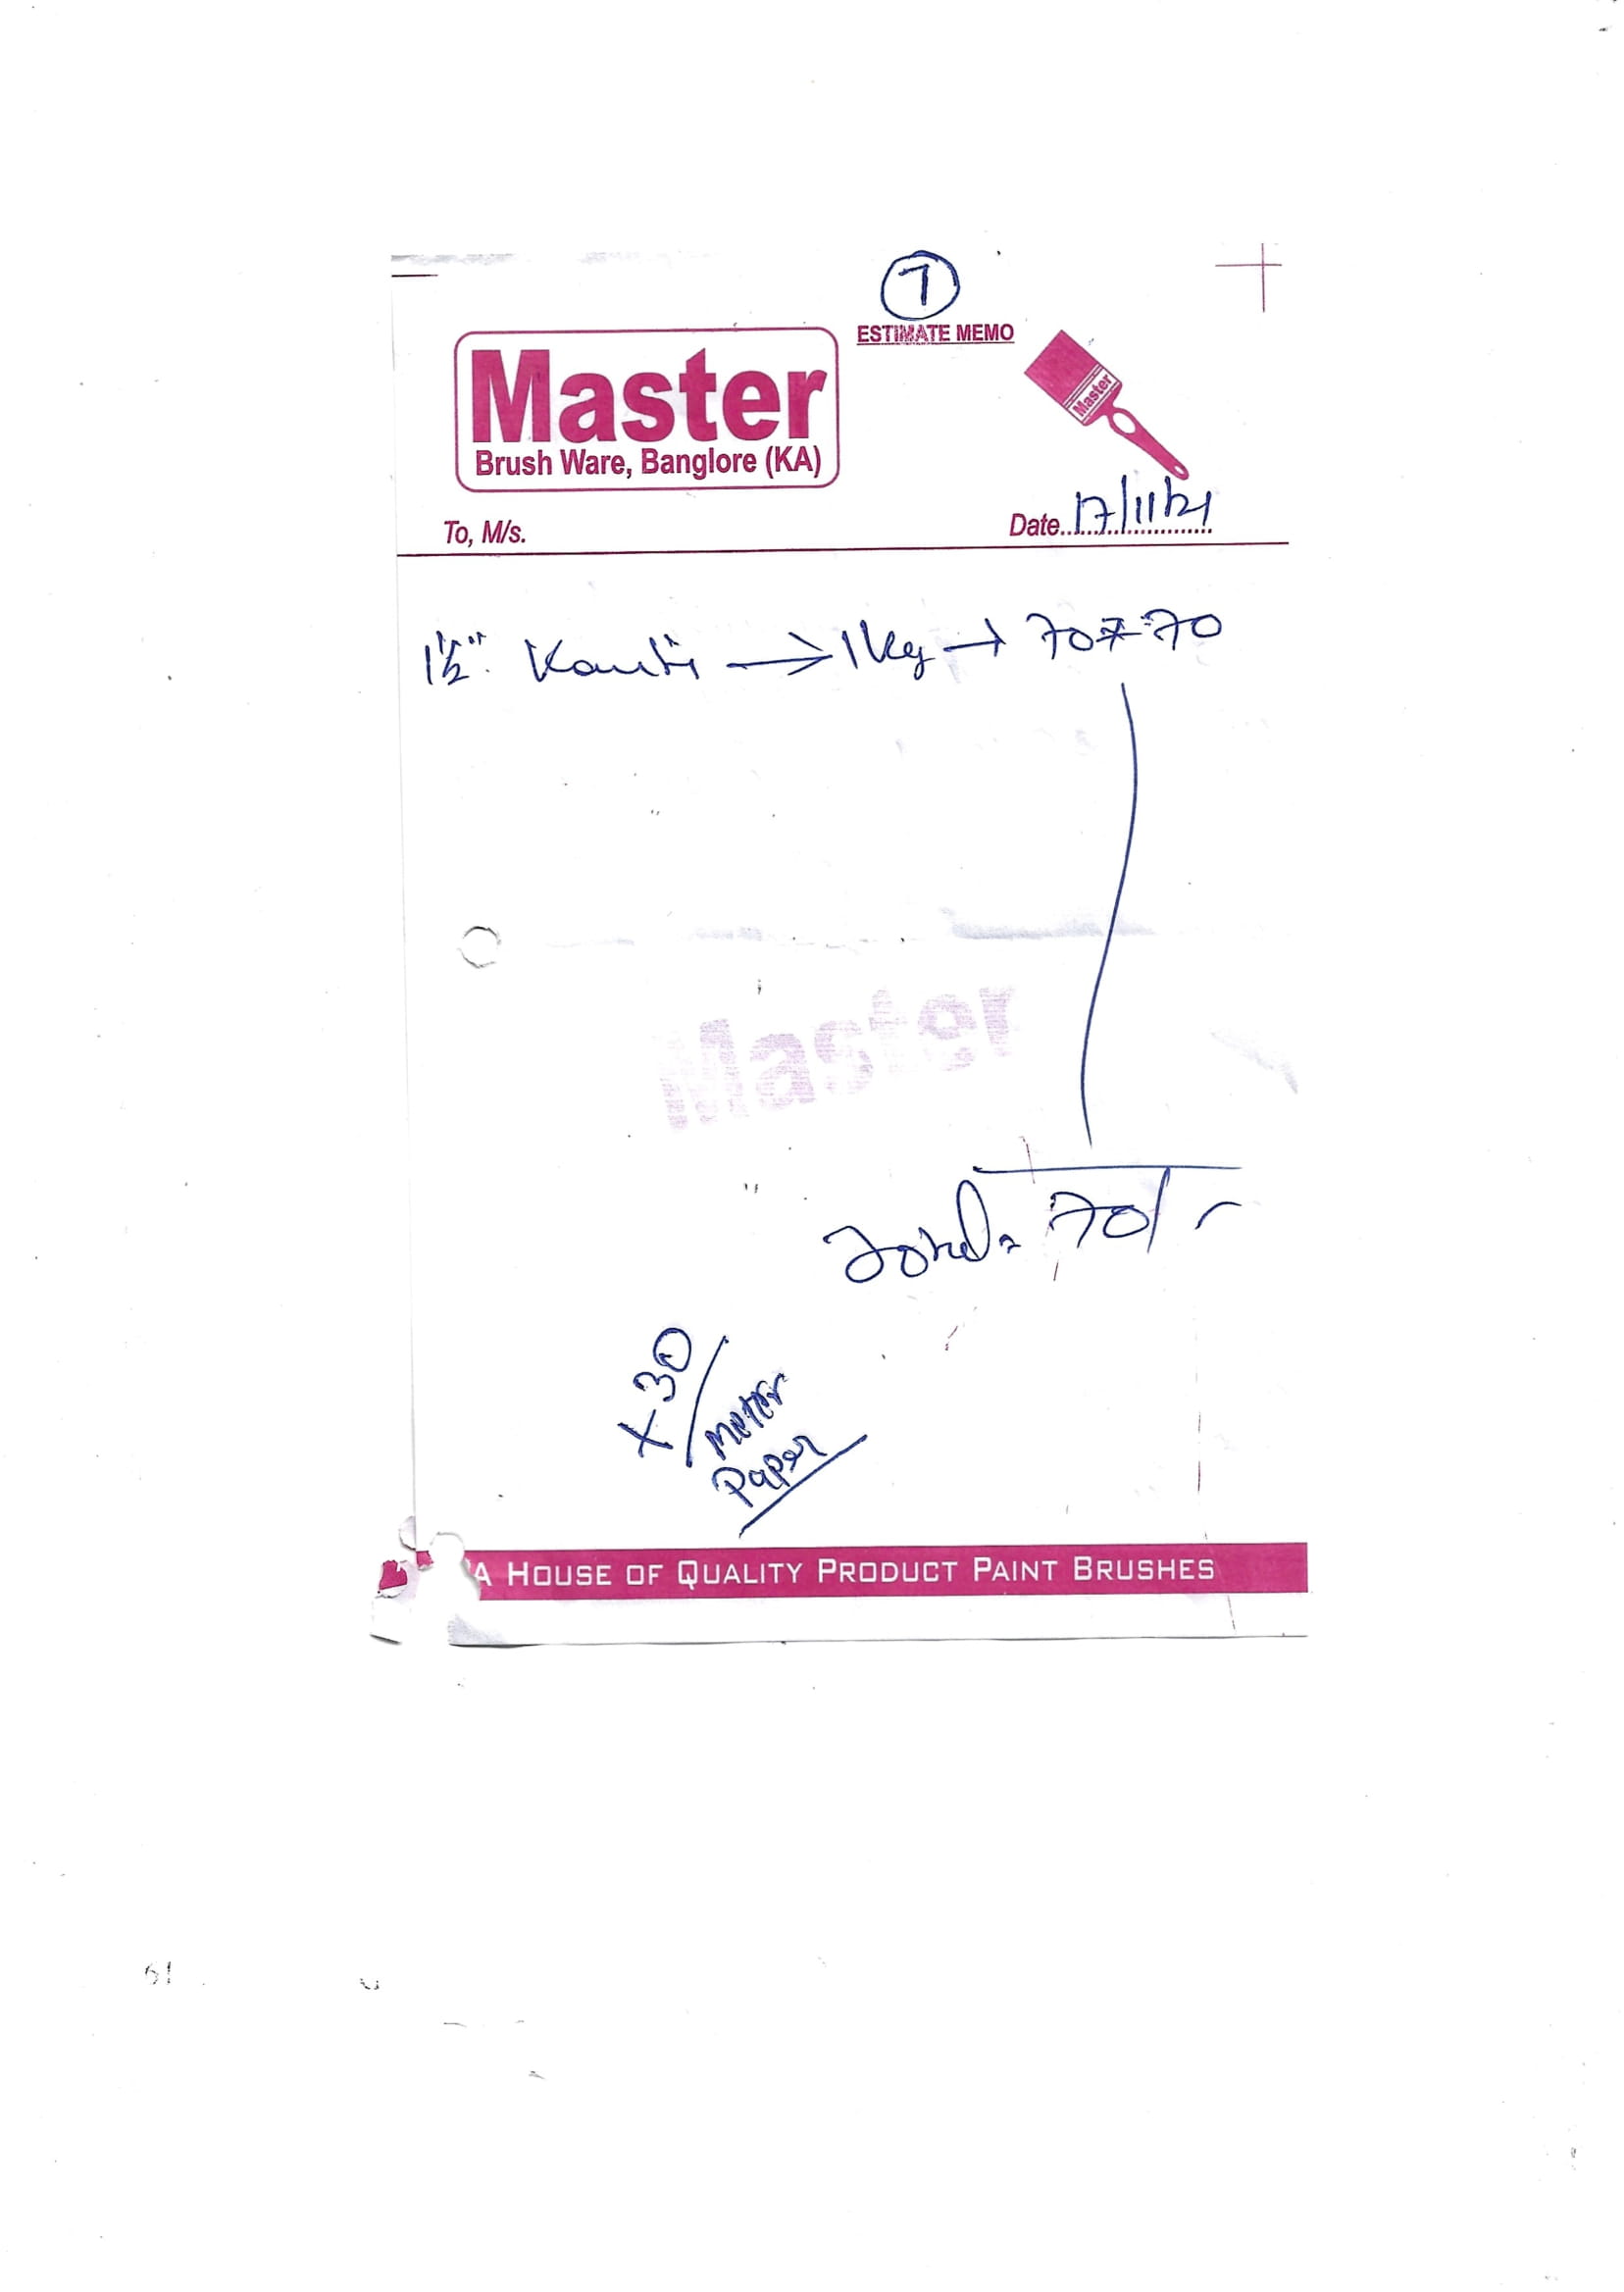 7
ESTIMATE MEMO
Master
Master
Brush Ware, Banglore (KA)
To, M/s.
Date 17/11/21
1½" → 1 Kg → 70 70
Master
Total = 70/-
+ 30 / meter
Paper
A HOUSE OF QUALITY PRODUCT PAINT BRUSHES